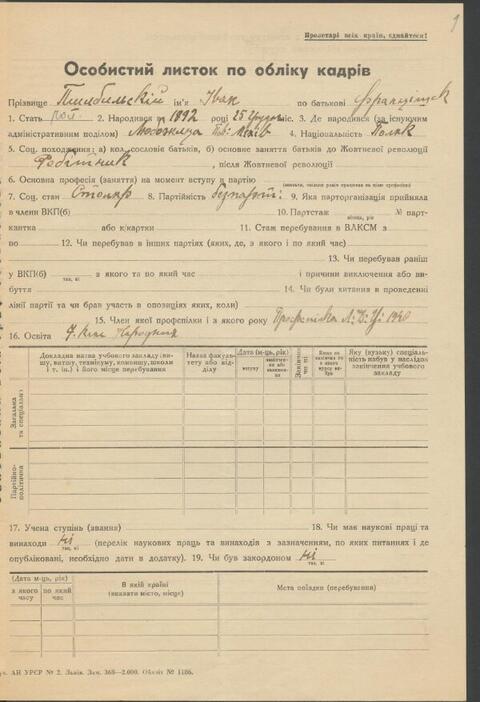 Пролетарі всіх країн, єднайтеся!
Особистий листок по обліку кадрів
Прізвище Пшибильскій ім'я Іван по батькові Францішек
1. Стать 2. Народився в 1892 році 25 Грудня міс. 3. Де народився (за існуючим
адміністративним поділом) Львів 4. Національність Поляк
5. Соц. походження: а) кол. сословіє батьків, б) основне заняття батьків до Жовтневої революції
Робітник, після Жовтневої революції
6. Основна професія (заняття) на момент вступу в партію
7. Соц. стан Столяр 8. Партійність безпарт. 9. Яка парторганізація прийняла
в члени ВКП(б) 10. Партстаж місяць, рік № парт-
квитка або к/картки 11. Стаж перебування в ВЛКСМ з
до 12. Чи перебував в інших партіях (яких, де, з якого і по який час)
13. Чи перебував раніш
у ВКП(б) так, ні з якого та по який час і причини виключення або ви-
буття 14. Чи були хитання в проведенні
лінії партії та чи брав участь в опозиціях яких, коли)
15. Член якої профспілки і з якого року 1940
16. Освіта 7. кл. Народних
Докладна назва учбового закладу (ви-
шу, втузу, технікуму, комвишу, школи
і т. ін.) і його місце перебування
Назва факуль-
тету або від-
ділу
Дата (м-ць, рік)
вступу
закінчен-
ня або
залишен-
ня
Закінчив
чи ні
Яку (вузьку) спеціаль-
ність набув в наслідок
закінчення учбового
закладу
Загальна
та спеціальна
Партійно-
політична
17. Учена ступінь (звання) 18. Чи має наукові праці та
винаходи ні так, ні (перелік наукових праць та винаходів з зазначенням, по яких питаннях і де
опубліковані, необхідно дати в додатку). 19. Чи був закордоном ні так, ні
(Дата м-ць, рік)
з якого
часу
по який
час
В якій країні
(вказати місто, місце)
Мета поїздки (перебування)
АН УРСР № 2. Львів. Зам. 368—2.000. Обліт № 1186.